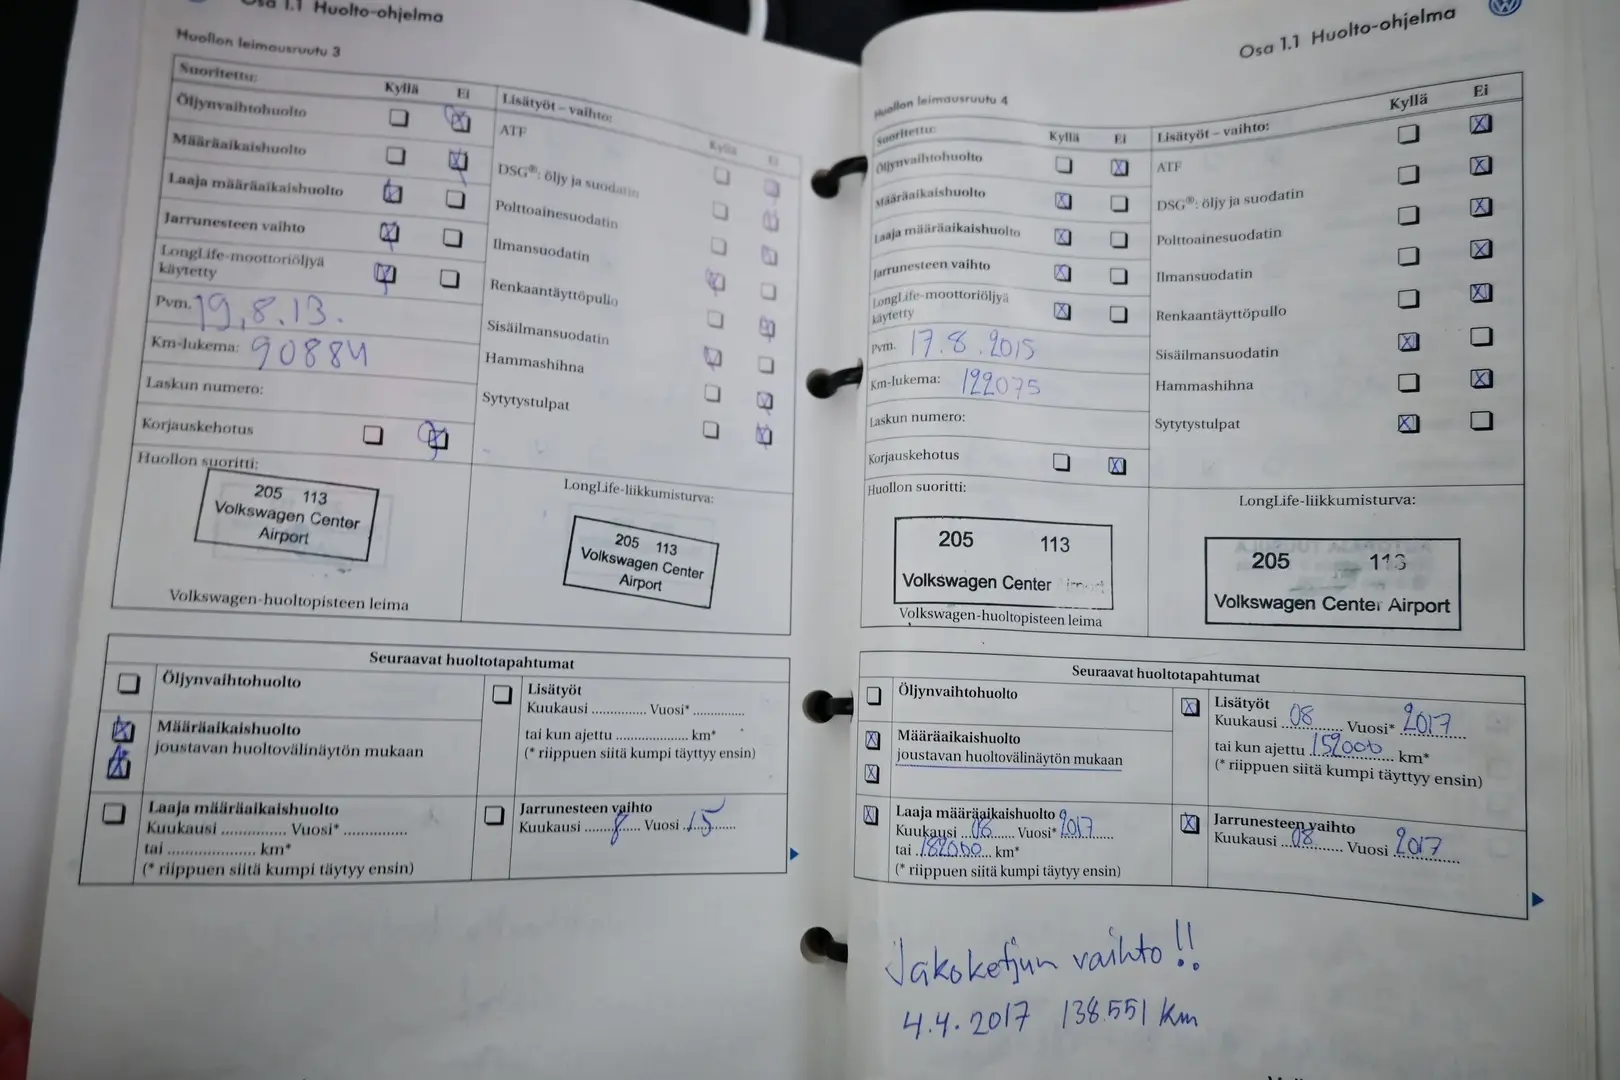 Osa 1.1 Huolto-ohjelma
Huollon leimausruutu 3
Suoritettu:
Kyllä Ei
Öljynvaihtohuolto
Määräaikaishuolto
Laaja määräaikaishuolto
Jarrunesteen vaihto
LongLife-moottoriöljyä
käytetty
Pvm. 19.8.13.
Km-lukema: 90884
Laskun numero:
Korjauskehotus
Lisätyöt – vaihto:
Kyllä Ei
ATF
DSG®: öljy ja suodatin
Polttoainesuodatin
Ilmansuodatin
Renkaantäyttöpullo
Sisäilmansuodatin
Hammashihna
Sytytystulpat
Huollon suoritti:
205 113
Volkswagen Center
Airport
Volkswagen-huoltopisteen leima
LongLife-liikkumisturva:
205 113
Volkswagen Center
Airport
Seuraavat huoltotapahtumat
Öljynvaihtohuolto
Määräaikaishuolto
joustavan huoltovälinäytön mukaan
Laaja määräaikaishuolto
Kuukausi ............... Vuosi* ...............
tai .................... km*
(* riippuen siitä kumpi täytyy ensin)
Lisätyöt
Kuukausi .............. Vuosi* .............
tai kun ajettu .................. km*
(* riippuen siitä kumpi täyttyy ensin)
Jarrunesteen vaihto
Kuukausi 8 Vuosi 15
Osa 1.1 Huolto-ohjelma
Huollon leimausruutu 4
Suoritettu:
Kyllä Ei
Öljynvaihtohuolto
Määräaikaishuolto
Laaja määräaikaishuolto
Jarrunesteen vaihto
LongLife-moottoriöljyä
käytetty
Pvm. 17.8.2015
Km-lukema: 122075
Laskun numero:
Korjauskehotus
Lisätyöt – vaihto:
Kyllä Ei
ATF
DSG®: öljy ja suodatin
Polttoainesuodatin
Ilmansuodatin
Renkaantäyttöpullo
Sisäilmansuodatin
Hammashihna
Sytytystulpat
Huollon suoritti:
205 113
Volkswagen Center Airport
Volkswagen-huoltopisteen leima
LongLife-liikkumisturva:
205 113
Volkswagen Center Airport
Seuraavat huoltotapahtumat
Öljynvaihtohuolto
Määräaikaishuolto
joustavan huoltovälinäytön mukaan
Laaja määräaikaishuolto
Kuukausi 08 Vuosi* 2017
tai 182000 km*
(* riippuen siitä kumpi täytyy ensin)
Lisätyöt
Kuukausi 08 Vuosi* 2017
tai kun ajettu 152000 km*
(* riippuen siitä kumpi täyttyy ensin)
Jarrunesteen vaihto
Kuukausi 08 Vuosi 2017
Jakoketjun vaihto!!
4.4.2017 138.551 km